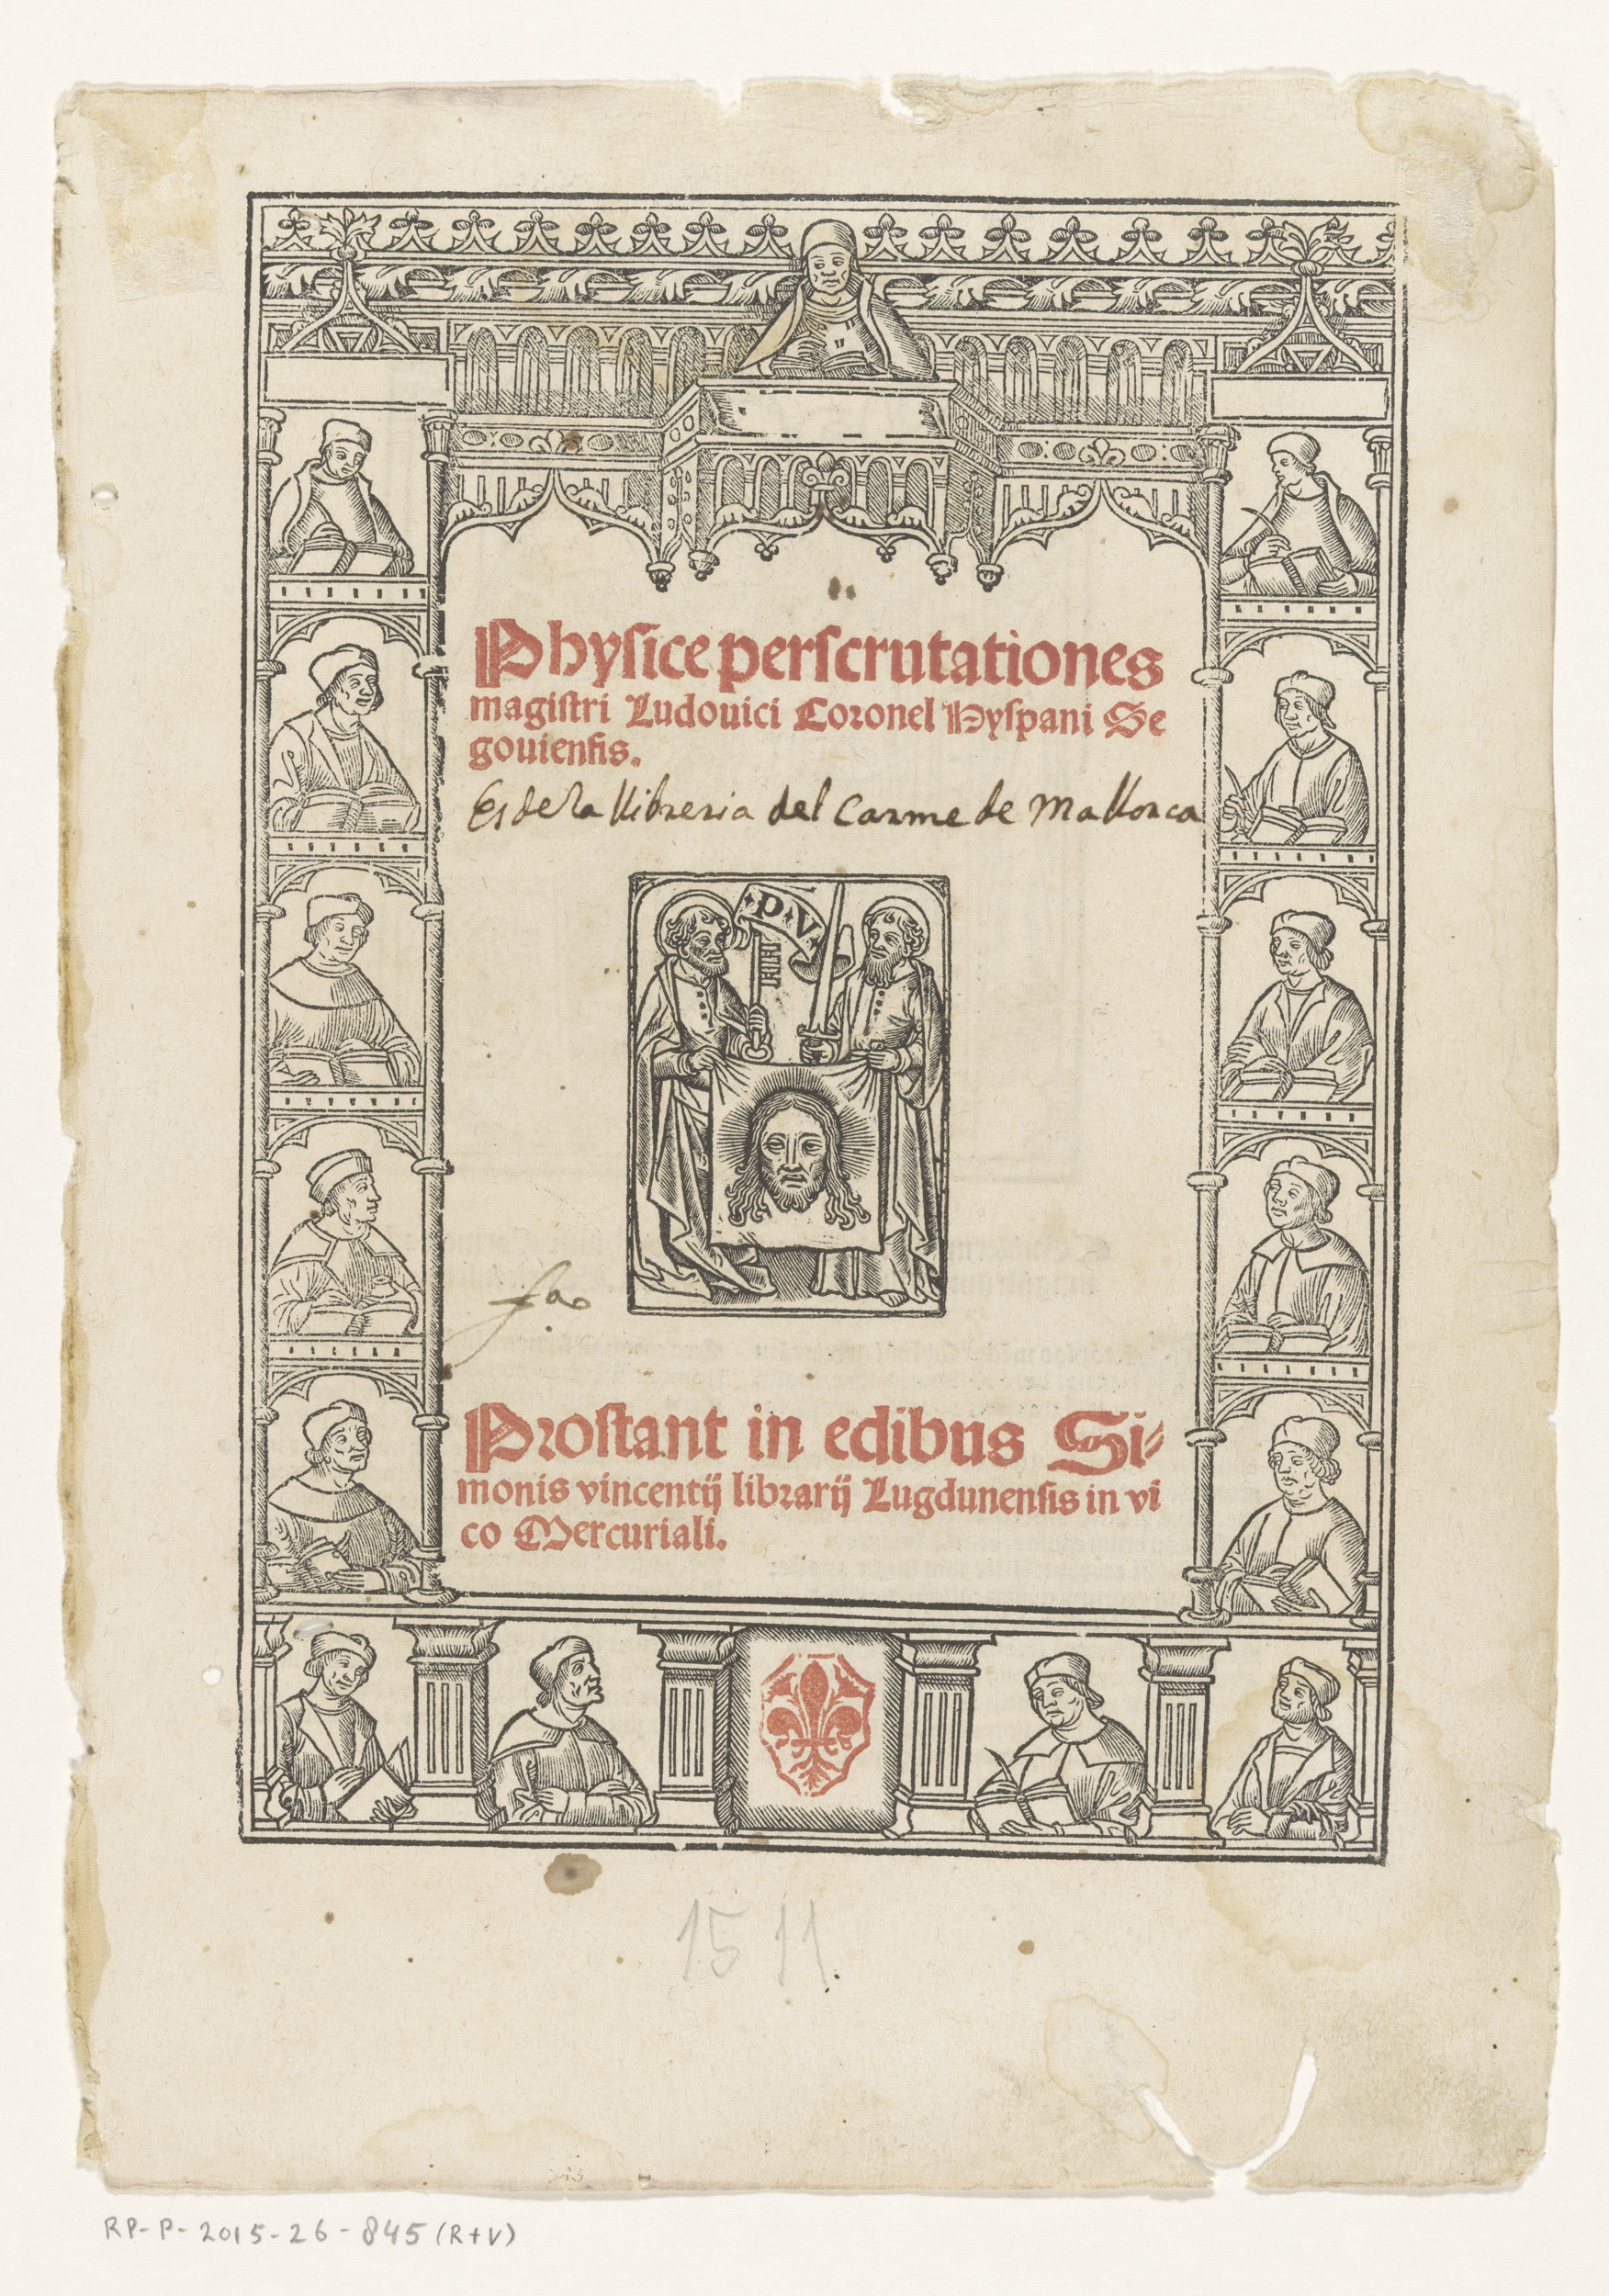 Physice perscrutationes
magistri Ludouici Coronel Hyspani Se
gouiensis.
Es de la llibreria del Carme de Mallorca
P V
Prostant in edibus Si-
monis vincentij librarij Lugdunensis in vi
co Mercuriali.
1511
RP-P-2015-26-845 (R+V)